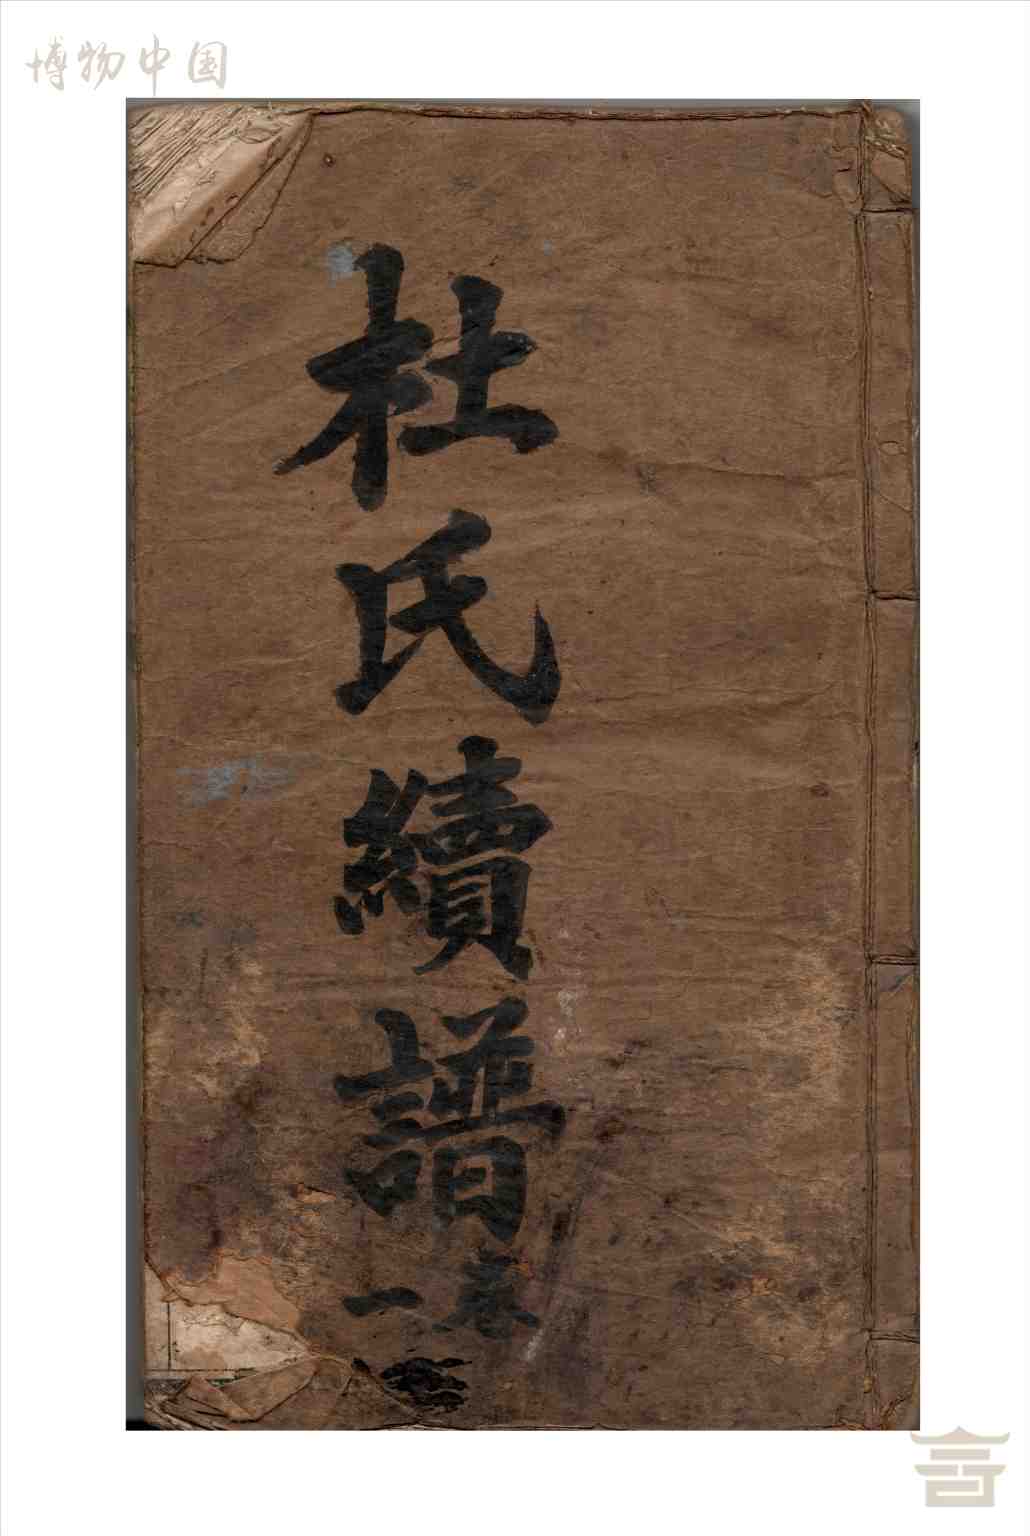 博物中国
杜氏續譜
一